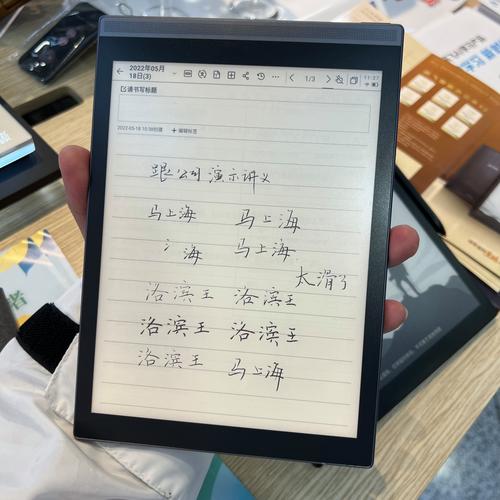 2022年05月
18日(3)
1/3
11:27
请书写标题
2022-05-18 10:38创建 + 编辑标签
跟公司演示讲义
马上海 马上海
氵海 马上海
太滑了
洛滨王 洛滨王
洛滨王 洛滨王
洛滨王 马上海